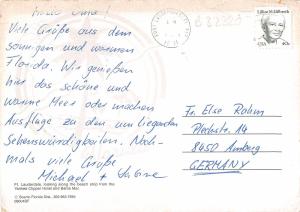 Hallo Oma!
Viele Grüße aus dem
sonnigen und warmen
Florida. Wir genießen
hier das schöne und
warme Meer oder machen
Ausflüge zu den umliegenden
Sehenswürdigkeiten. Noch-
mals viele Grüße
Michael + Sabine
Fr. Else Rahm
Plechstr. A4
8450 Amberg
GERMANY
Ft. Lauderdale, looking along the beach strip from the
Yankee Clipper Hotel and Bahia Mar.
USA
40c